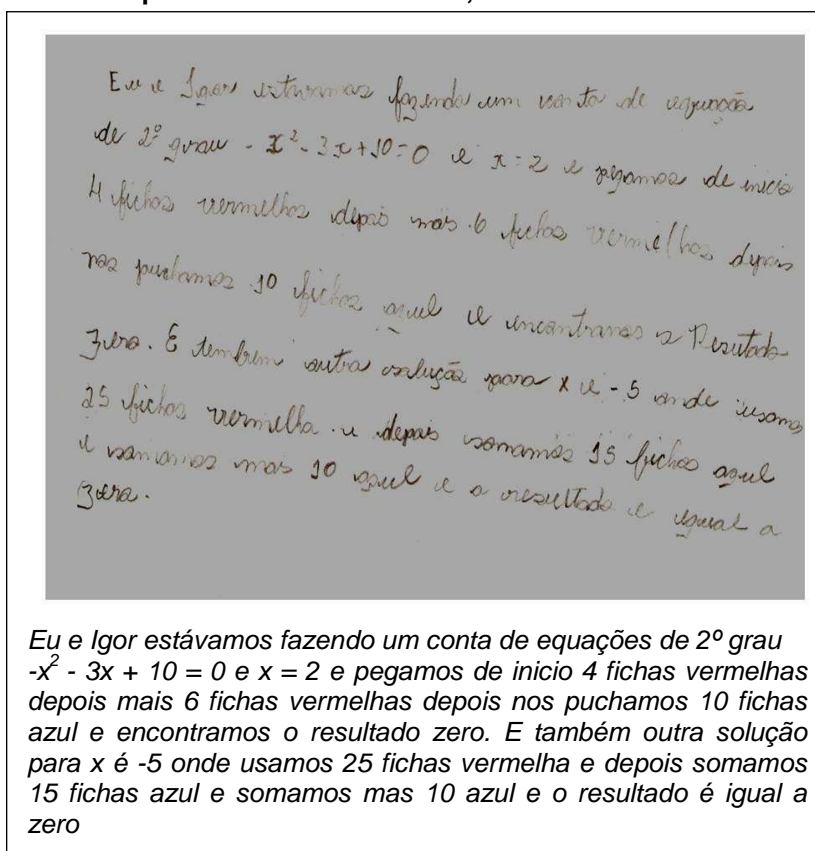 Eu e Igor estavamos fazendo um conta de equação
de 2º grau - x² - 3x + 10 = 0 e x = 2 e pegamos de inicio
4 fichas vermelhas depois mas 6 fichas vermelhas depois
nos puchamos 10 fichas azul e encontramos o Resutado
zero. E tembem outra solução para x é -5 onde usamos
25 fichas vermelha e depois somamos 15 fichas azul
e somamos mas 10 azul e o resultado e igual a
zero.
Eu e Igor estávamos fazendo um conta de equações de 2º grau
-x² - 3x + 10 = 0 e x = 2 e pegamos de inicio 4 fichas vermelhas
depois mais 6 fichas vermelhas depois nos puchamos 10 fichas
azul e encontramos o resultado zero. E também outra solução
para x é -5 onde usamos 25 fichas vermelha e depois somamos
15 fichas azul e somamos mas 10 azul e o resultado é igual a
zero